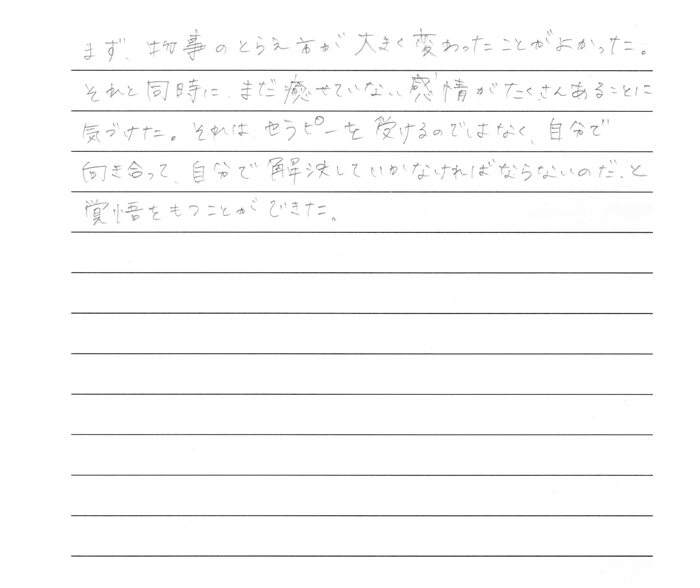 まず、物事のとらえ方が大きく変わったことがよかった。
それと同時に、まだ癒せていない感情がたくさんあることに
気づけた。それは、セラピーを受けるのではなく、自分で
向き合って、自分で解決していかなければならないのだ、と
覚悟をもつことができた。